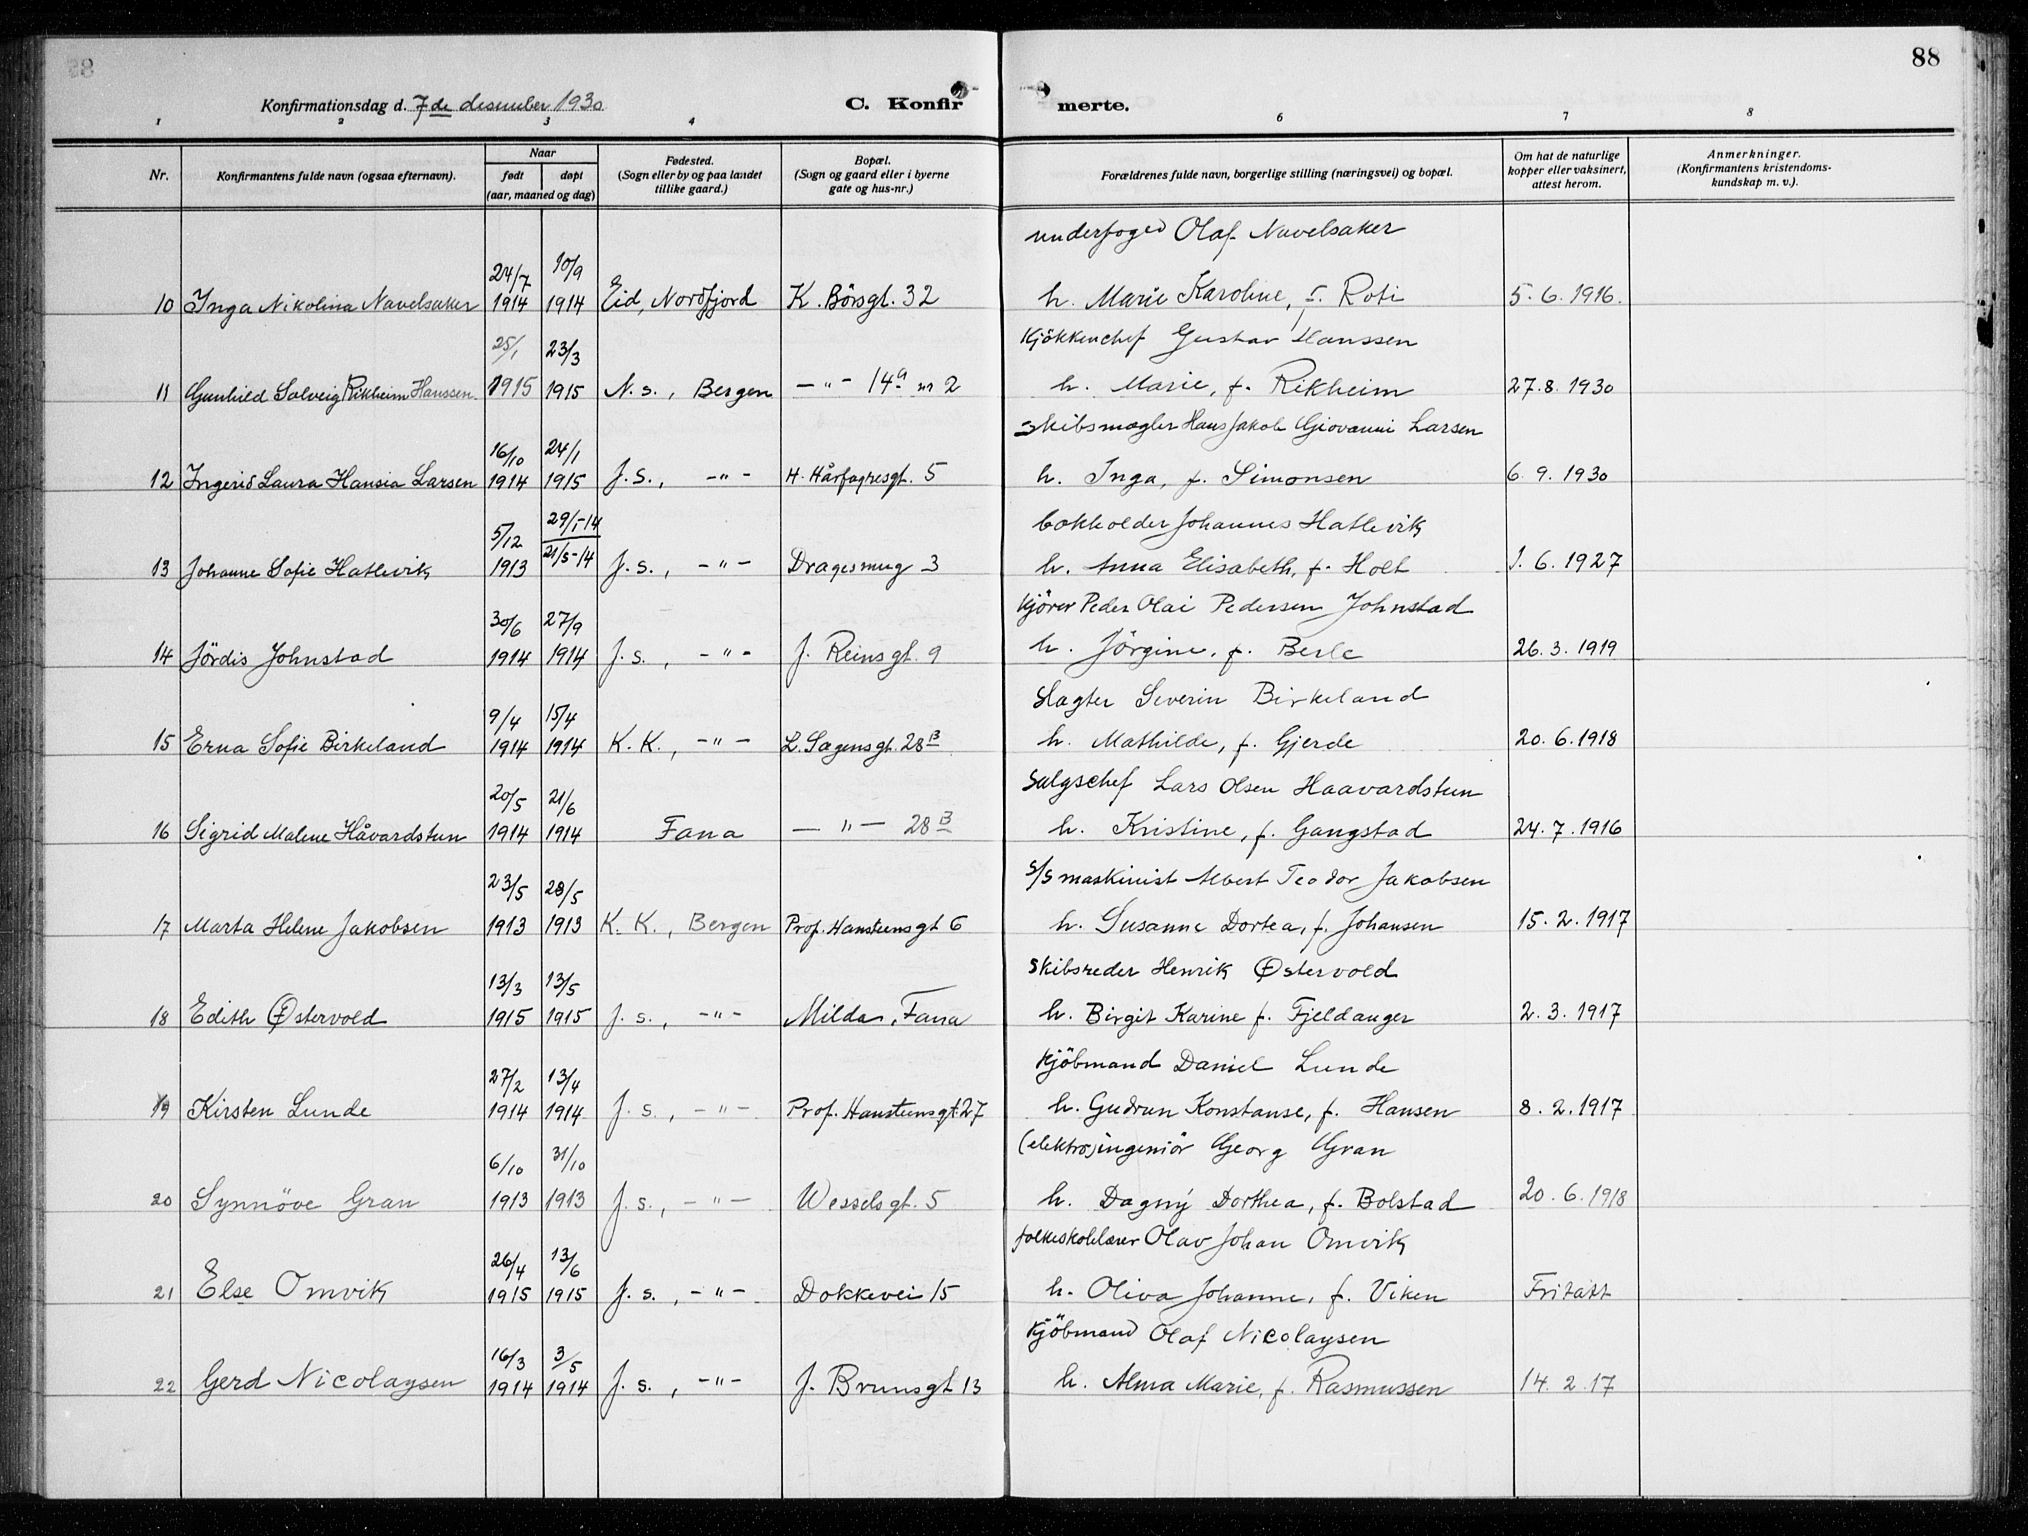 88
Konfirmationsdag d. 7de desember 1930
C. Konfirmerte.
1 2 3 4 6 7 8
Nr.
Konfirmantens fulde navn (ogsaa efternavn).
Naar
født
døpt
(aar, maaned og dag)
Fødested.
(Sogn eller by og paa landet
tillike gaard.)
Bopæl.
(Sogn og gaard eller i byerne
gate og hus-nr.)
Forældrenes fulde navn, borgerlige stilling (næringsvei) og bopæl.
Om hat de naturlige
kopper eller vaksinert,
attest herom.
Anmerkninger.
(Konfirmantens kristendoms-
kundskap m. v.).
underfoged Olaf Navelsaker
24/7 10/9
10 Inga Nikolina Navelsaker 1914 1914 Eid, Nordfjord K. Börsgt. 32 h. Marie Karoline, f. Roti 5. 6. 1916.
25/1 23/3 Kjökkenchef Gustav Hanssen
11 Gunhild Solveig Rikheim Hanssen 1915 1915 N. s., Bergen —"— 14a nr 2 h. Marie, f. Rikheim 27. 8. 1930
Skibsmægler Hans Jakob Giovanni Larsen
16/10 24/1
12 Ingerid Laura Hansia Larsen 1914 1915 J. s., —"— H. Hårfagresgt. 5 h. Inga, f. Simonsen 6. 9. 1930
29/1-14 bokholder Johannes Hatlevik
5/12 21/5-14
13 Johanne Sofie Hatlevik 1913 J. s., —"— Dragesmug 3 h. Anna Elisabeth, f. Holt 1. 6. 1927
30/6 27/9 Kjörer Peder Olai Pedersen Johnstad
14 Jördis Johnstad 1914 1914 J. s., —"— J. Reinsgt. 9 h. Jörgine, f. Berle 26. 3. 1919
9/4 15/4 Slagter Severin Birkeland
15 Erna Sofie Birkeland 1914 1914 K. K., —"— L. Sagensgt. 28B h. Mathilde, f. Gjerde 20. 6. 1918
20/5 21/6 Salgschef Lars Olsen Haavardstun
16 Sigrid Malene Håvardstun 1914 1914 Fana —"— 28B h. Kristine, f. Gangstad 24. 7. 1916
23/5 28/5 s/s maskinist Albert Teodor Jakobsen
17 Marta Helene Jakobsen 1913 1913 K. K., Bergen Prof. Hansteensgt 6 h. Susanne Dortea, f. Johansen 15. 2. 1917
13/3 13/5 Skibsreder Henrik Østervold
18 Edith Østervold 1915 1915 J. s., —"— Milde, Fana h. Birgit Karine f. Fjeldanger 2. 3. 1917
27/2 13/4 Kjöbmand Daniel Lunde
19 Kirsten Lunde 1914 1914 J. s., —"— Prof. Hansteensgt. 27 h. Gudrun Konstanse, f. Hansen 8. 2. 1917
6/10 31/10 (elektro)ingeniör Georg Gran
20 Synnöve Gran 1913 1913 J. s., —"— Wesselsgt. 5 h. Dagny Dorthea, f. Bolstad 20. 6. 1918
26/4 13/6 folkeskolelærer Olav Johan Omvik
21 Else Omvik 1915 1915 J. s., —"— Dokkevei 15 h. Oliva Johanne, f. Viken Fritatt
16/3 3/5 Kjöbmand Olaf Nicolaysen
22 Gerd Nicolaysen 1914 1914 J. s., —"— J. Brunsgt 13 h. Alma Marie, f. Rasmussen 14. 2. 17